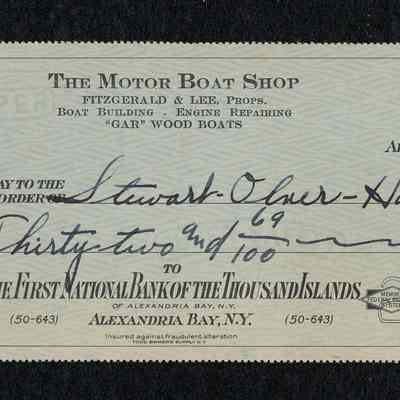 THE MOTOR BOAT SHOP
FITZGERALD & LEE, PROPS.
BOAT BUILDING - ENGINE REPAIRING
"GAR" WOOD BOATS
AY TO THE
ORDER OF Stewart-Olner-Ha
Thirty-two and 69/100
TO
E FIRST NATIONAL BANK OF THE THOUSAND ISLANDS
OF ALEXANDRIA BAY, N.Y.
(50-643) ALEXANDRIA BAY, N.Y. (50-643)
Insured against fraudulent alteration
TODD BANKER'S SUPPLY N.Y.
MEMBER
FEDERAL RESERVE
SYSTEM